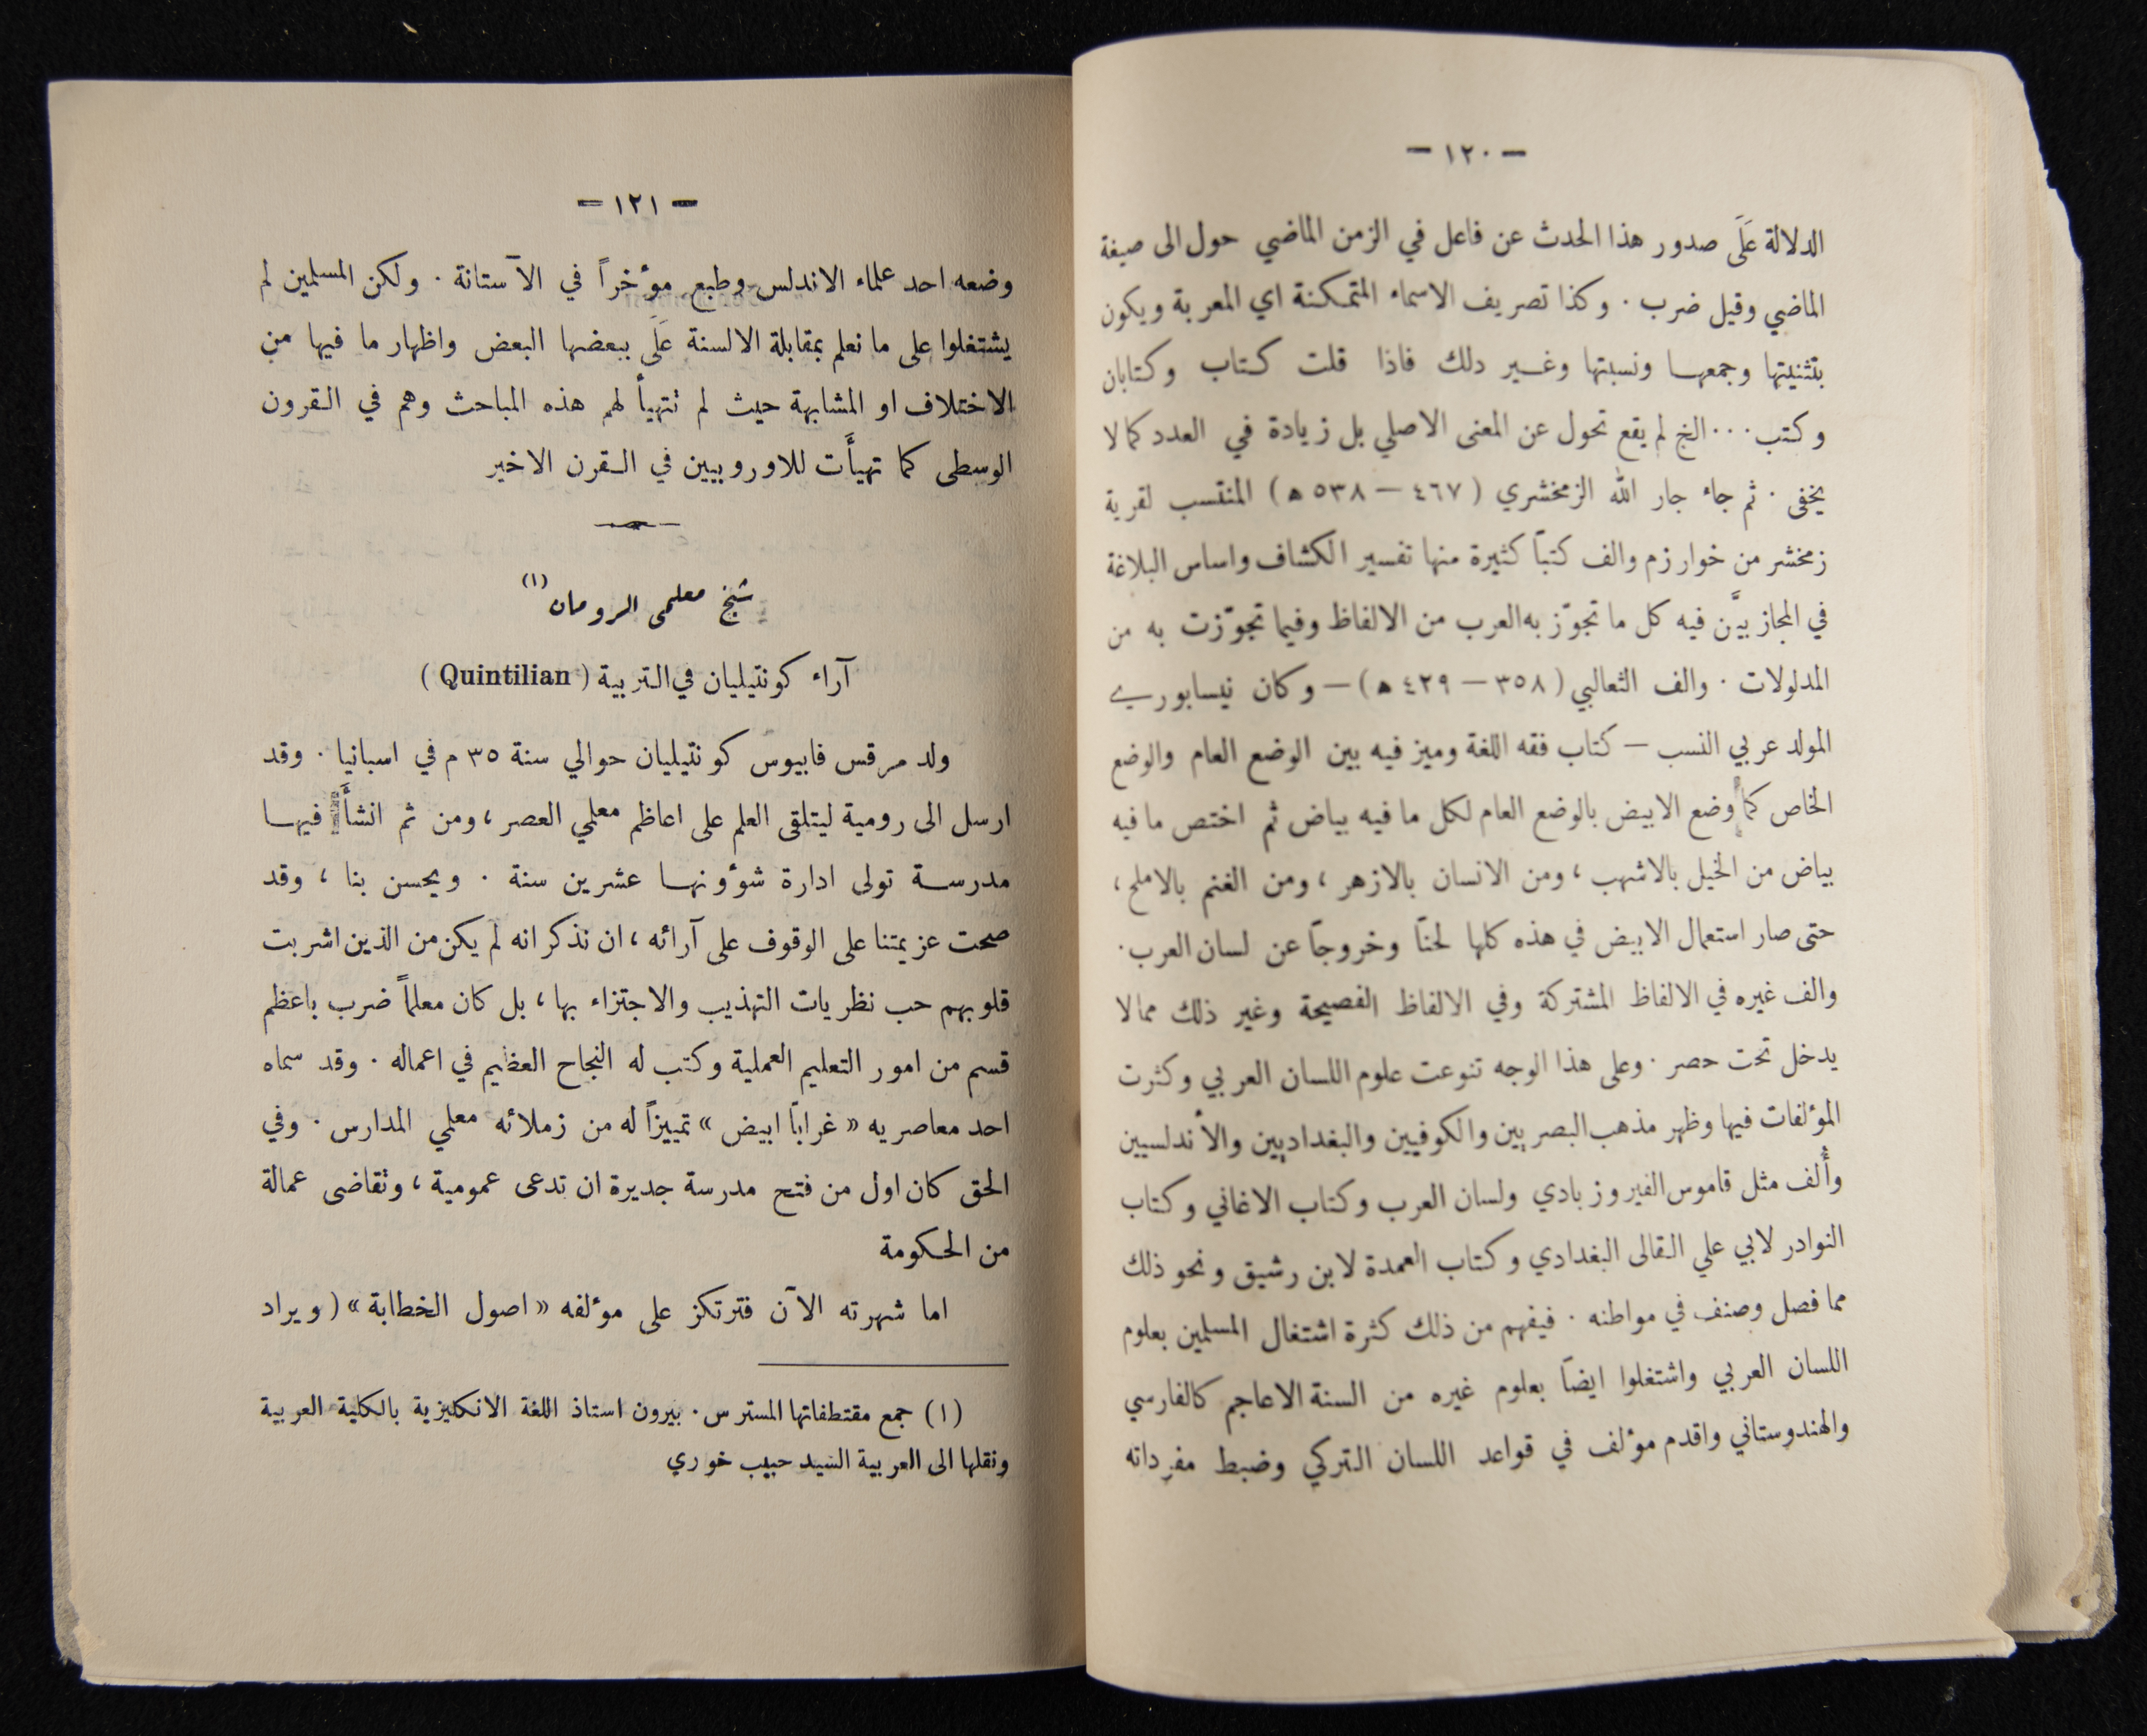 — ١٢٠ —
الدلالة عَلَى صدور هذا الحدث عن فاعل في الزمن الماضي حول الى صيغة
الماضي وقيل ضرب . وكذا تصريف الاسماء المتمكنة اي المعربة ويكون
بتثنيتها وجمعها ونسبتها وغير دلك فاذا قلت كتاب وكتابان
وكتب ... الخ لم يقع تحول عن المعنى الاصلي بل زيادة في العدد كما لا
يخفى . ثم جاء جار الله الزمخشري ( ٤٦٧ — ٥٣٨ ه ) المنتسب لقرية
زمخشر من خوارزم والف كتباً كثيرة منها تفسير الكشاف واساس البلاغة
في المجاز بيَّن فيه كل ما تجوّز به العرب من الالفاظ وفيما تجوّزت به من
المدلولات . والف الثعالبي ( ٣٥٨ — ٤٢٩ ه ) — وكان نيسابوري
المولد عربي النسب — كتاب فقه اللغة وميز فيه بين الوضع العام والوضع
الخاص كما وضع الابيض بالوضع العام لكل ما فيه بياض ثم اختص ما فيه
بياض من الخيل بالاشهب ، ومن الانسان بالازهر ، ومن الغنم بالاملح ،
حتى صار استعمال الابيض في هذه كلها لحناً وخروجاً عن لسان العرب .
والف غيره في الالفاظ المشتركة وفي الالفاظ الفصيحة وغير ذلك ممالا
يدخل تحت حصر . وعلى هذا الوجه تنوعت علوم اللسان العربي وكثرت
المؤلفات فيها وظهر مذهب البصريين والكوفيين والبغداديين والأندلسيين
وأُلف مثل قاموس الفيروزبادي ولسان العرب وكتاب الاغاني وكتاب
النوادر لابي علي القالى البغدادي وكتاب العمدة لابن رشيق ونحو ذلك
مما فصل وصنف في مواطنه . فيفهم من ذلك كثرة اشتغال المسلمين بعلوم
اللسان العربي واشتغلوا ايضاً بعلوم غيره من السنة الاعاجم كالفارسي
والهندوستاني واقدم مؤلف في قواعد اللسان التركي وضبط مفرداته
— ١٢١ —
وضعه احد علماء الاندلس وطبع مؤخراً في الآستانة . ولكن المسلمين لم
يشتغلوا على ما نعلم بمقابلة الالسنة عَلَى ببعضها البعض واظهار ما فيها من
الاختلاف او المشابهة حيث لم تتهيأ لهم هذه المباحث وهم في القرون
الوسطى كما تهيأَت للاوروبيين في القرن الاخير
شيخ معلمى الرومان (١)
آراء كونتيليان في التربية ( Quintilian )
ولد مرقس فابيوس كونتيليان حوالي سنة ٣٥ م في اسبانيا . وقد
ارسل الى رومية ليتلقى العلم على اعاظم معلمي العصر ، ومن ثم انشأَ فيها
مدرسة تولى ادارة شؤونها عشرين سنة . ويحسن بنا ، وقد
صحت عزيمتنا على الوقوف على آرائه ، ان نذكر انه لم يكن من الذين اشربت
قلوبهم حب نظريات التهذيب والاجتزاء بها ، بل كان معلماً ضرب باعظم
قسم من امور التعليم العملية وكتب له النجاح العظيم في اعماله . وقد سماه
احد معاصريه « غراباً ابيض » تمييزاً له من زملائه معلمي المدارس . وفي
الحق كان اول من فتح مدرسة جديرة ان تدعى عمومية ، وتقاضى عمالة
من الحكومة
اما شهرته الآن فترتكز على مؤلفه « اصول الخطابة » ( ويراد
(١) جمع مقتطفاتها المستر س . بيرون استاذ اللغة الانكليزية بالكلية العربية
ونقلها الى العربية السيد حبيب خوري